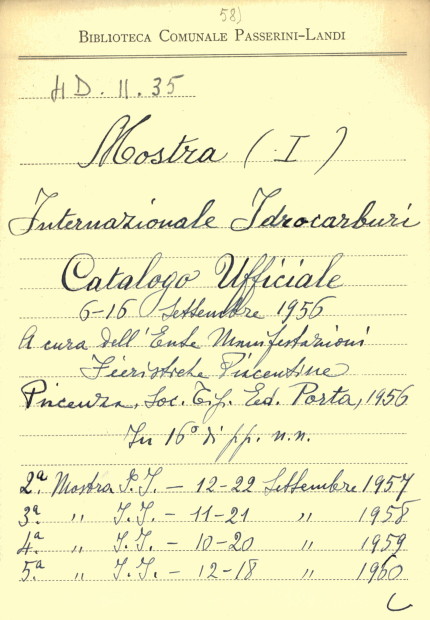 58)
BIBLIOTECA COMUNALE PASSERINI-LANDI
4D. II. 35
Mostra ( I )
Internazionale Idrocarburi
Catalogo Ufficiale
6-16 Settembre 1956
A cura dell'Ente Manifestazioni
Fieristiche Piacentine
Piacenza, Soc. Tip. Ed. Porta, 1956
In 16° di pp. n.n.
2ª. Mostra I.I. - 12-22 Settembre 1957
3ª. " I.I. - 11-21 " 1958
4ª " I.I. - 10-20 " 1959
5ª " I.I. - 12-18 " 1960